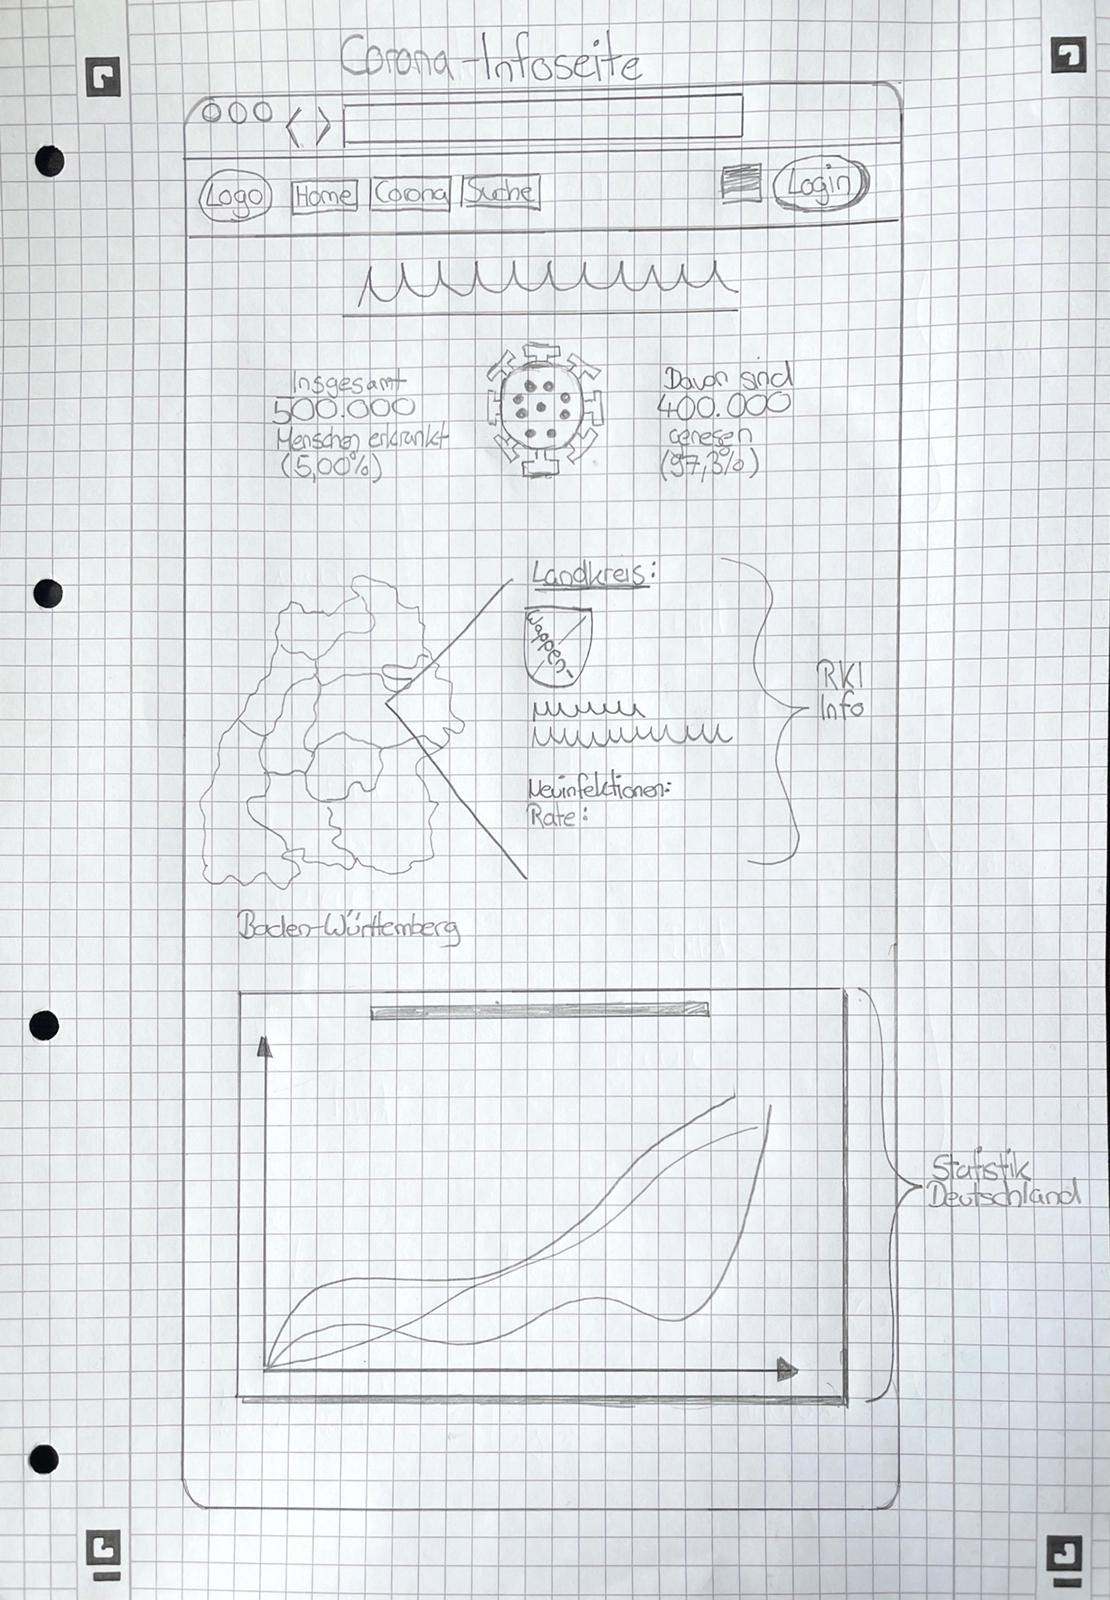 Corona-Infoseite
Logo Home Corona Suche Login
Insgesamt
500.000
Menschen erkrankt
(5,00%)
Davon sind
400.000
genesen
(97,3%)
Landkreis:
Wappen
RKI
Info
Neuinfektionen:
Rate:
Baden-Württemberg
Statistik
Deutschland